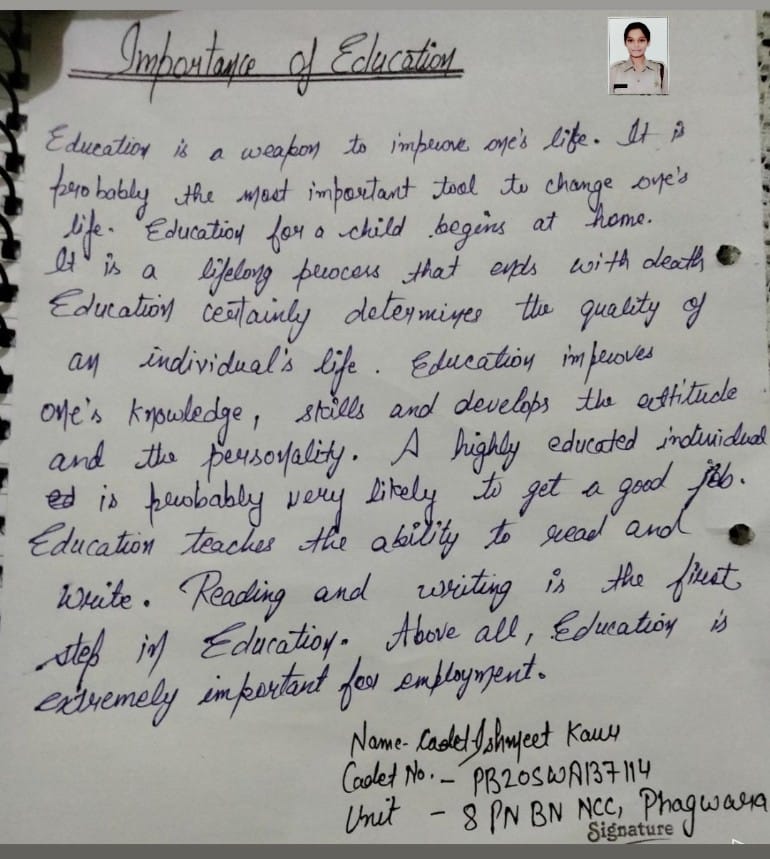 Importance of Education
Education is a weapon to improve one's life. It is
probably the most important tool to change one's
life. Education for a child begins at home.
It is a lifelong process that ends with death
Education certainly determines the quality of
an individual's life. Education improves
one's knowledge, skills and develops the attitude
and the personality. A highly educated individual
ed is probably very likely to get a good job.
Education teaches the ability to read and
write. Reading and writing is the first
step in Education. Above all, Education is
extremely important for employment.
Name- Cadet Ishmeet Kaur
Cadet No. - PB20SWA137114
Unit - 8 PN BN NCC, Phagwara
Signature